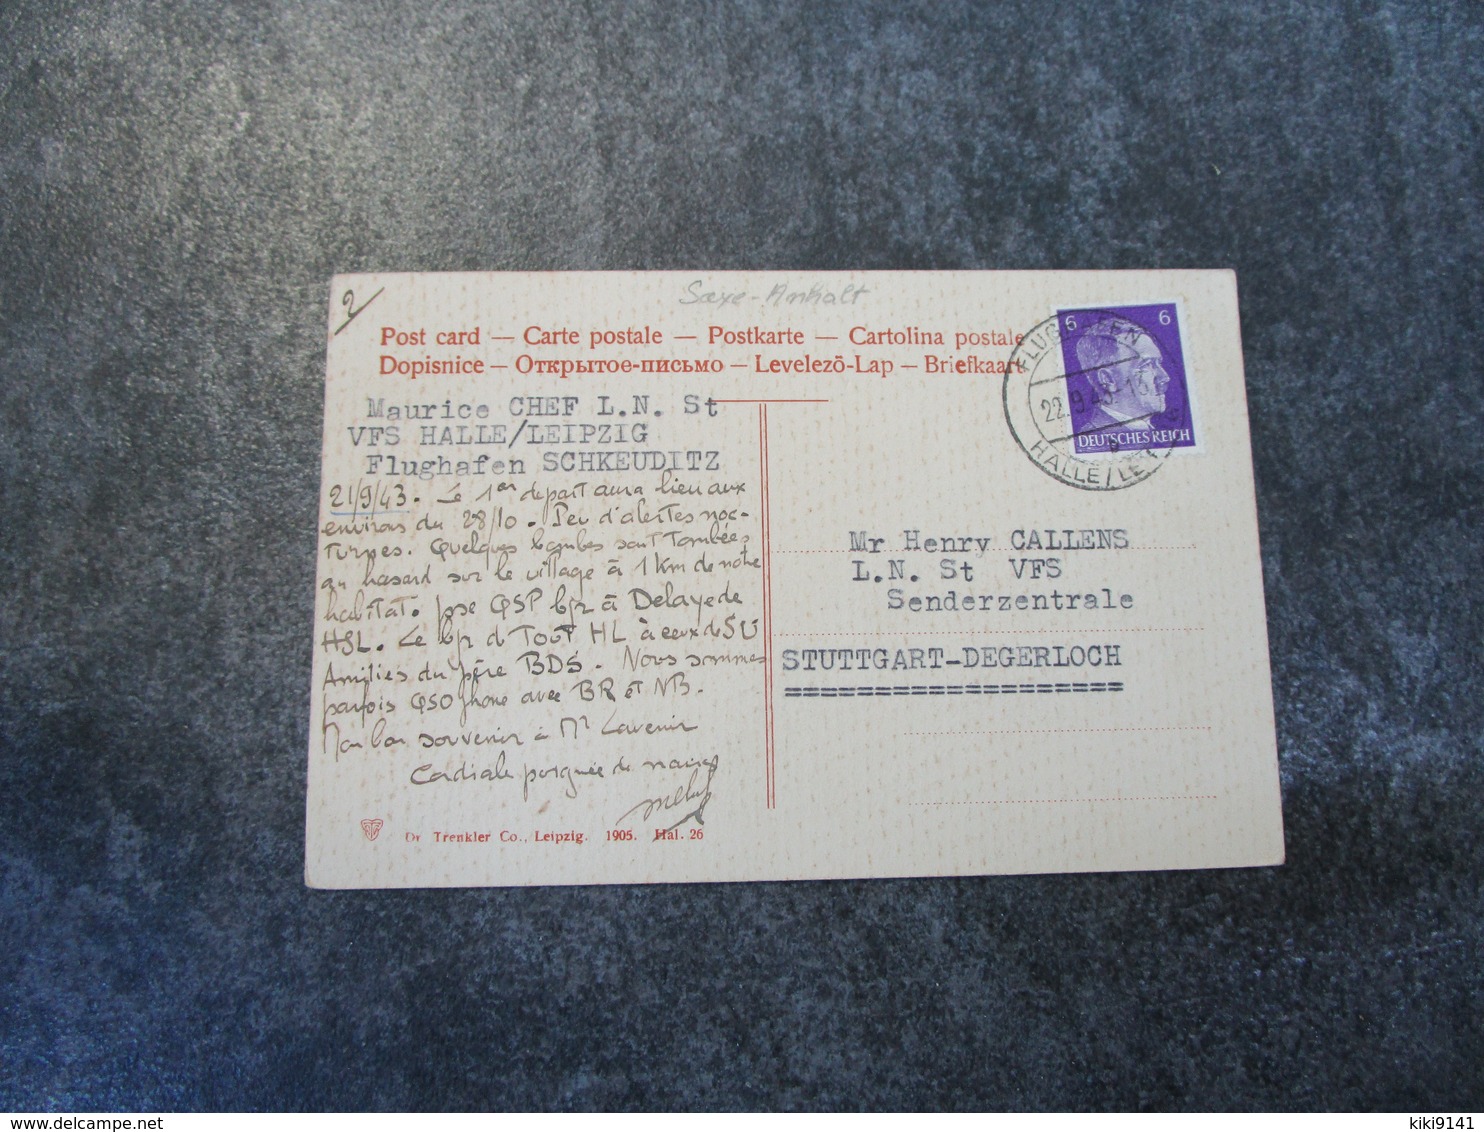 2
Saxe-Anhalt
Post card — Carte postale — Postkarte — Cartolina postale
Dopisnice — Открытое-письмо — Levelezõ-Lap — Briefkaart
Maurice CHEF L.N. St
VFS HALLE/LEIPZIG
Flughafen SCHKEUDITZ
21/9/43. Le 1er depart aura lieu aux
environs du 28/10. Peu d'alertes noc-
turnes. Quelques bombes sont tombées
au hasard sur le village à 1 km de notre
habitat. pse QSP bjr à Delaye de
HSL. Le bjr d Tout HL à ceux d SU
Amitiés du père BDS. Nous sommes
parfois QSO phone avec BR et NB.
Mon bon souvenir à Mr Lavenir
Cordiale poignée de mains
Dr Trenkler Co., Leipzig. 1905. Hal. 26
6 6
DEUTSCHES REICH
FLUGHAFEN
22.9.43
HALLE/LEI
Mr Henry CALLENS
L.N. St VFS
Senderzentrale
STUTTGART-DEGERLOCH
====================
delcampe.net
kiki9141